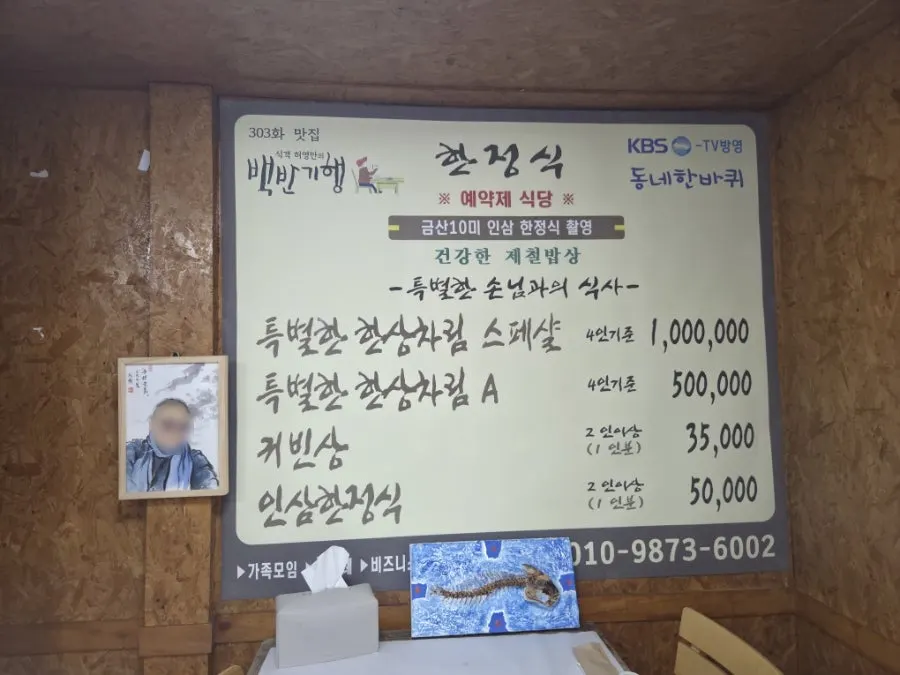 303화 맛집
식객 허영만의
백반기행
한정식
KBS -TV방영
동네한바퀴
※ 예약제 식당 ※
금산10미 인삼 한정식 촬영
건강한 제철밥상
-특별한 손님과의 식사-
특별한 한상차림 스페샬 4인기준 1,000,000
특별한 한상차림 A 4인기준 500,000
커빈상 2인이상 (1인분) 35,000
인삼한정식 2인이상 (1인분) 50,000
▶가족모임 ▶비즈니스 010-9873-6002